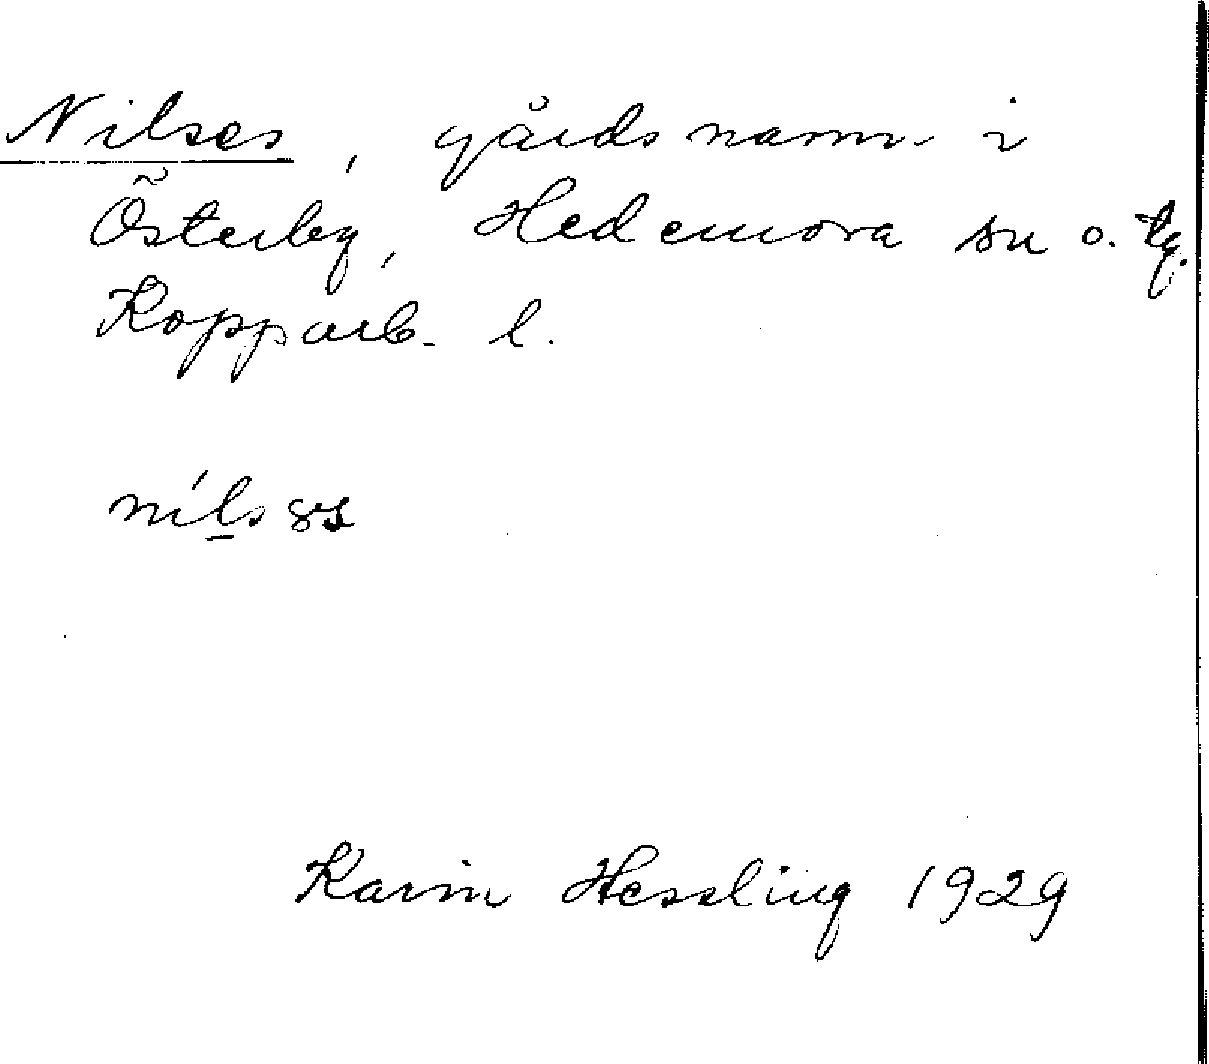 Nilses, gårdsnamn i
Österby, Hedemora sn o. tg.
Kopparb. l.
Karin Hessling 1929